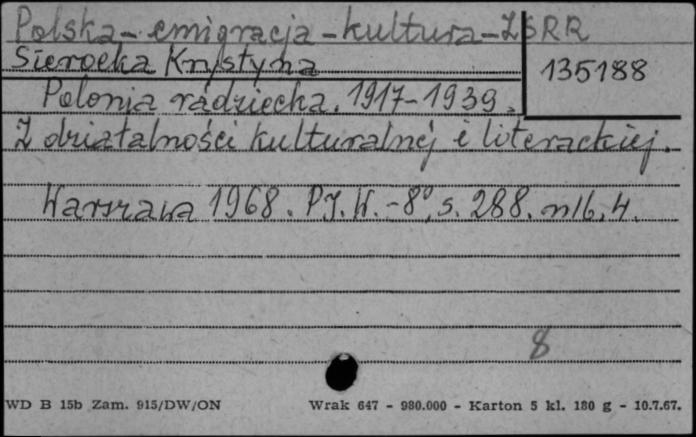 Polska - emigracja - kultura - ZSRR
Sierocka Krystyna
135188
Polonia radziecka. 1917-1939.
Z działalności kulturalnej i literackiej.
Warszawa 1968. P.I.W. - 8°, s. 288.
8
WD B 15b Zam. 915/DW/ON
Wrak 647 - 980.000 - Karton 5 kl. 180 g - 10.7.67.